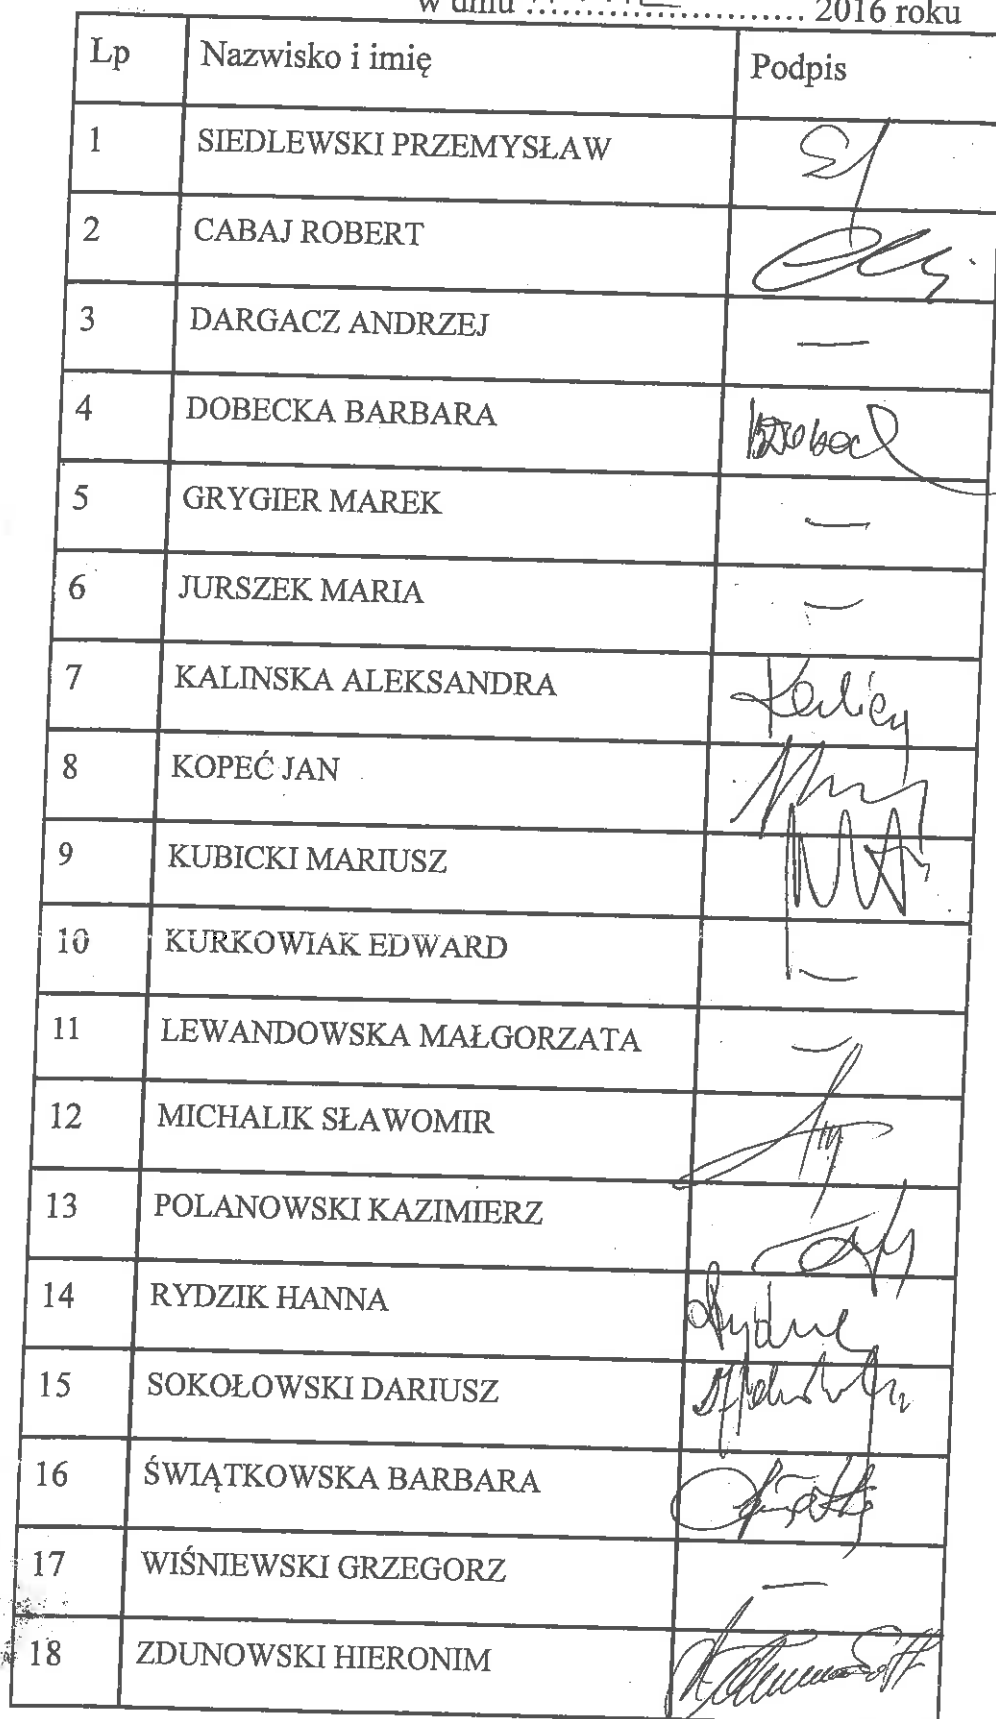 w dniu ........................ 2016 roku
Lp Nazwisko i imię Podpis
1 SIEDLEWSKI PRZEMYSŁAW
2 CABAJ ROBERT
3 DARGACZ ANDRZEJ —
4 DOBECKA BARBARA
5 GRYGIER MAREK —
6 JURSZEK MARIA —
7 KALINSKA ALEKSANDRA
8 KOPEĆ JAN
9 KUBICKI MARIUSZ
10 KURKOWIAK EDWARD —
11 LEWANDOWSKA MAŁGORZATA —
12 MICHALIK SŁAWOMIR
13 POLANOWSKI KAZIMIERZ
14 RYDZIK HANNA
15 SOKOŁOWSKI DARIUSZ
16 ŚWIĄTKOWSKA BARBARA
17 WIŚNIEWSKI GRZEGORZ —
18 ZDUNOWSKI HIERONIM